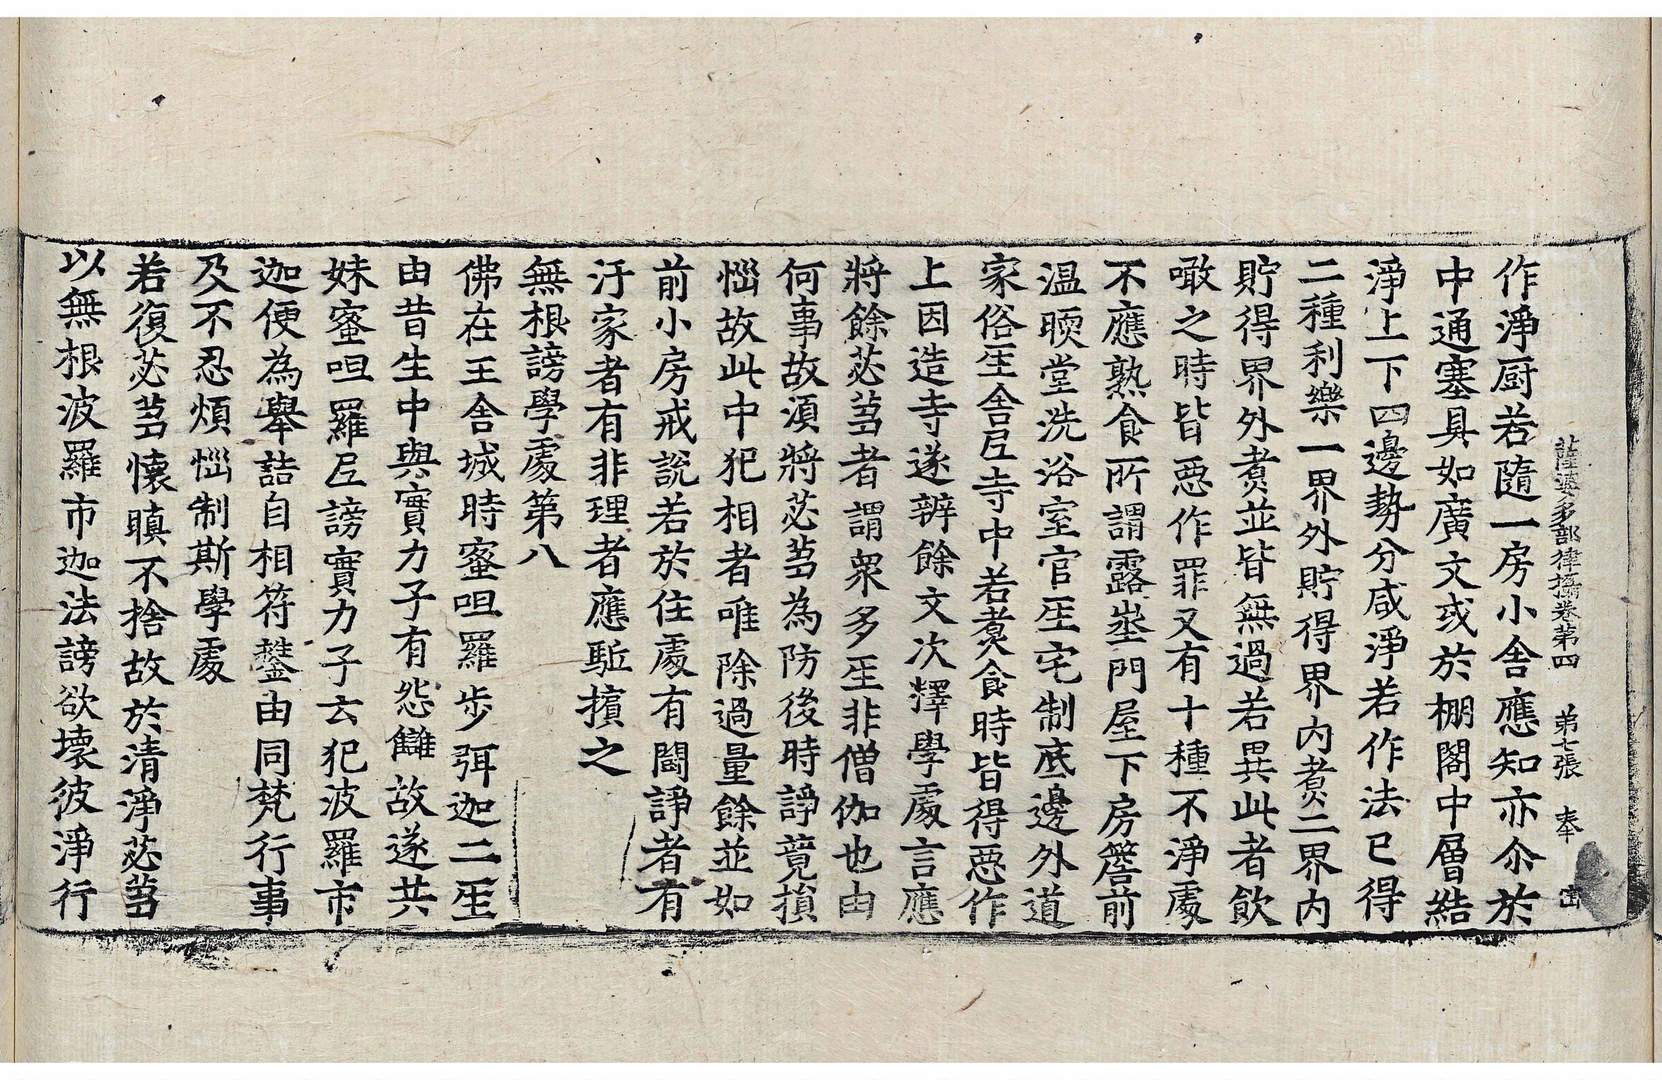 薩婆多部律攝卷第四 第七張 奉
作淨厨若隨一房小舍應知亦尒於
中通塞具如廣文或於棚閣中層結
淨上下四邊勢分咸淨若作法已得
二種利樂一界外貯得界內煑二界內
貯得界外煑並皆無過若異此者飲
噉之時皆惡作罪又有十種不淨處
不應熟食所謂露𡌛門屋下房簷前
温暝堂洗浴室官𤯔宅制底邊外道
家俗𤯔舍𡰱寺中若煑食時皆得惡作
上因造寺遂辨餘文次釋學處言應
將餘苾芻者謂衆多𤯔非僧伽也由
何事故湏將苾芻為防後時諍競損
惱故此中犯相者唯除過量餘並如
前小房戒說若於住處有鬪諍者有
汙家者有非理者應駈擯之
無根謗學處第八
佛在王舍城時蜜呾羅步弭迦二𤯔
由昔生中與實力子有怨讎故遂共
妹蜜呾羅𡰱謗實力子云犯波羅市
迦便為舉詰自相符㨫由同梵行事
及不忍煩惱制斯學處
若復苾芻懷瞋不捨故於清淨苾芻
以無根波羅市迦法謗欲壞彼淨行